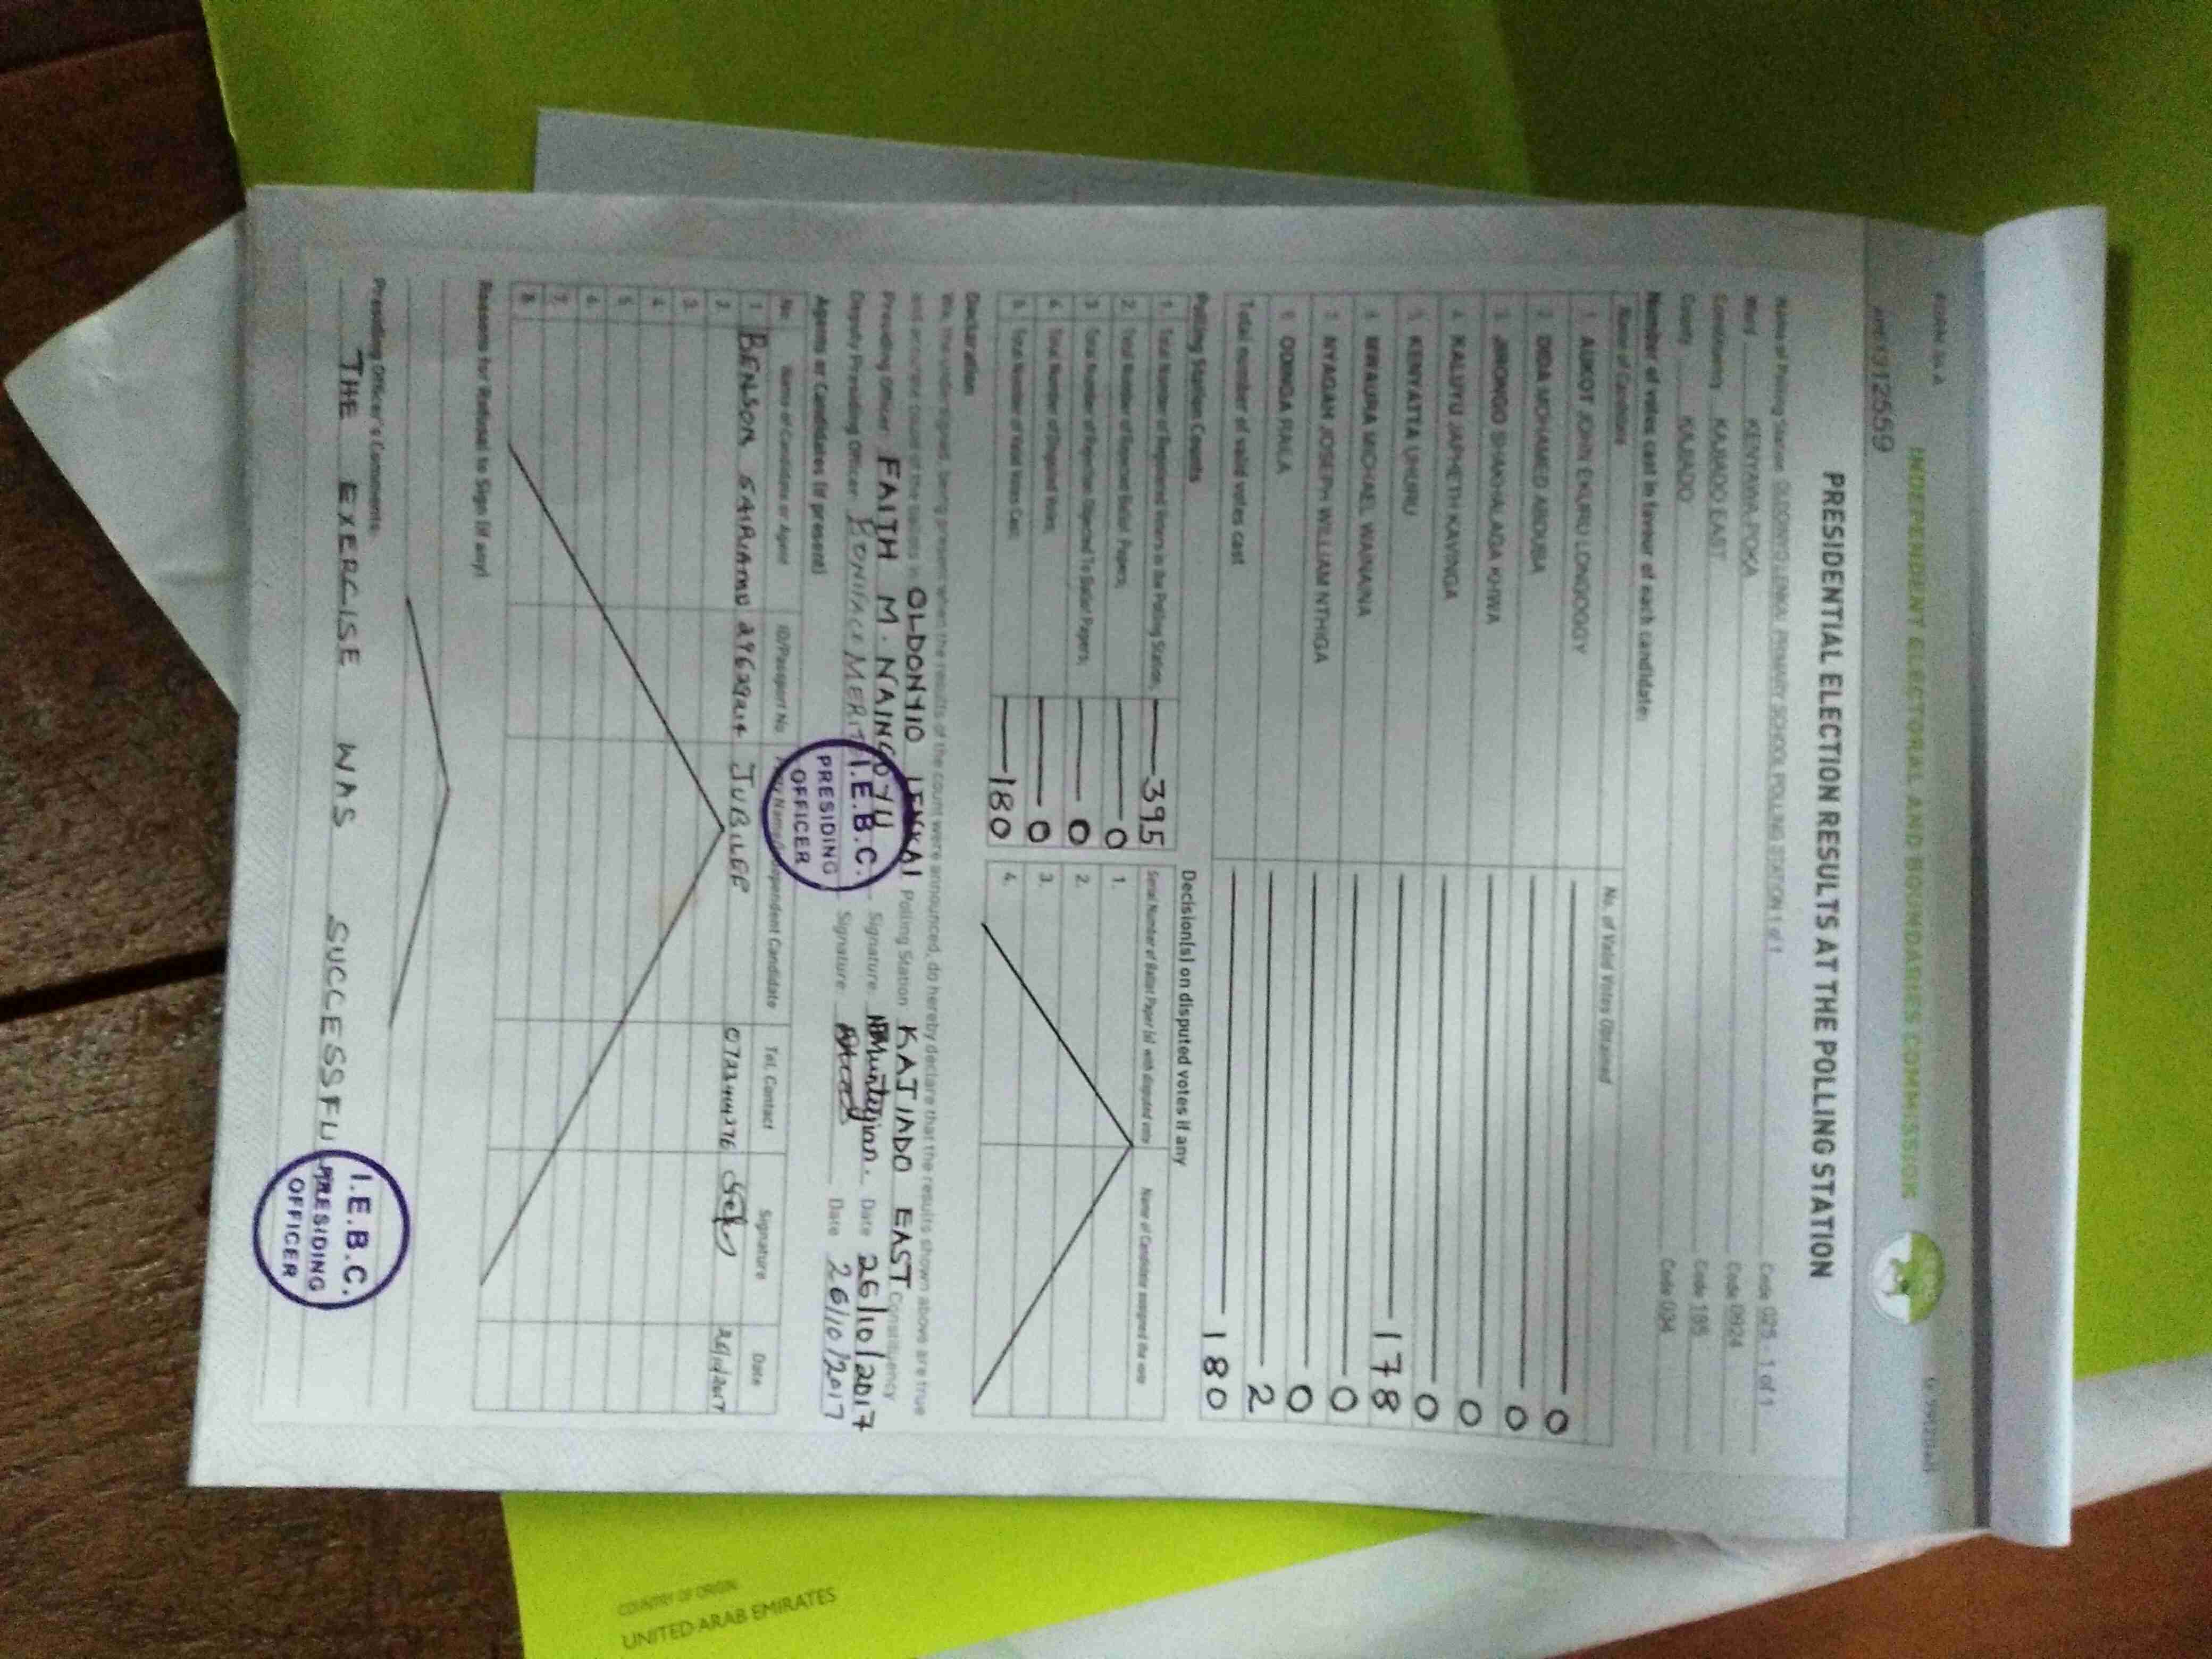 FORM 34 A
INDEPENDENT ELECTORAL AND BOUNDARIES COMMISSION
PRESIDENTIAL ELECTION RESULTS AT THE POLLING STATION
Name of Polling Station PRIMARY SCHOOL POLLING STATION 1 of 1 Code 025 1 of 1
Ward KENYAWA-POKA Code 0924
Constituency KAJIADO EAST Code 185
County KAJIADO Code 034
Number of votes cast in favour of each candidate:
Name of Candidate No. of Valid Votes Obtained
1. AUKOT JOHN EKURU LONGOGGY 0
2. DIDA MOHAMED ABDUBA 0
3. JIRONGO SHAKHALAGA KHWA 0
4. KALUYU JAPHETH KAVINGA 0
5. KENYATTA UHURU 178
6. MWAURA MICHAEL WAINAINA 0
7. NYAGAH JOSEPH WILLIAM NTHIGA 0
8. ODINGA RAILA 2
Total number of valid votes cast 180
Polling Station Counts
1. Total Number of Registered Voters in the Polling Station; 395
2. Total Number of Rejected Ballot Papers; 0
3. Total Number of Rejection Objected To Ballot Papers; 0
4. Total Number of Disputed Votes; 0
5. Total Number of Valid Votes Cast; 180
Decision(s) on disputed votes if any
Serial Number of Ballot Paper (s) with disputed vote Name of Candidate assigned the vote
1.
2.
3.
4.
Declaration
We, the undersigned, being present when the results of the count were announced, do hereby declare that the results shown above are true
and accurate count of the ballots in OLDONYIO LENKAI Polling Station KAJIADO EAST Constituency
Presiding Officer FAITH M. Signature: Date 26/10/2017
Deputy Presiding Officer BONIFACE Signature: Date 26/10/2017
I.E.B.C.
PRESIDING
OFFICER
Agents or Candidates (if present)
No. Name of Candidate or Agent ID/Passport No Party Name/Independent Candidate Tel. Contact Signature Date
1. BENSON JUBILEE
2.
3.
4.
5.
6.
7.
8.
Reasons for Refusal to Sign (if any)
Presiding Officer's Comments:
THE EXERCISE WAS SUCCESSFUL
I.E.B.C.
PRESIDING
OFFICER
COUNTRY OF ORIGIN
UNITED ARAB EMIRATES